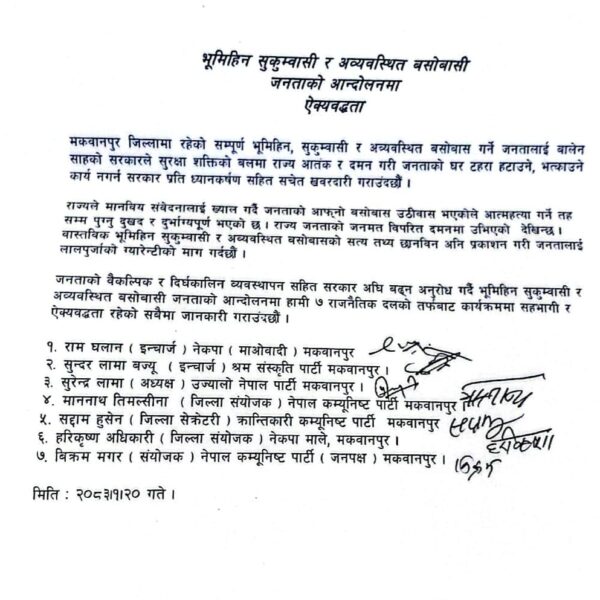 भूमिहिन सुकुम्वासी र अव्यवस्थित बसोबासी
जनताको आन्दोलनमा
ऐक्यवद्धता
मकवानपुर जिल्लामा रहेको सम्पूर्ण भूमिहिन, सुकुम्वासी र अव्यवस्थित बसोबास गर्ने जनतालाई बालेन
साहको सरकारले सुरक्षा शक्तिको बलमा राज्य आतंक र दमन गरी जनताको घर टहरा हटाउने, भत्काउने
कार्य नगर्न सरकार प्रति ध्यानकर्षण सहित सचेत खबरदारी गराउंदछौं ।
राज्यले मानबिय संबेदनालाई ख्याल गर्दै जनताको आफ्नो बसोबास उठीवास भएकोले आत्महत्या गर्ने तह
सम्म पुग्नु दुखद र दुर्भाग्यपूर्ण भएको छ । राज्य जनताको जनमत विपरित दमनमा उभिएको देखिन्छ ।
बास्तविक भूमिहिन सुकुम्वासी र अव्यवस्थित बसोबासको सत्य तथ्य छानविन अनि प्रकाशन गरी जनतालाई
लालपुर्जाको ग्यारेन्टीको माग गर्दछौं ।
जनताको वैकल्पिक र दिर्घकालिन व्यवस्थापन सहित सरकार अघि बढ्न अनुरोध गर्दै भूमिहिन सुकुम्वासी र
अव्यवस्थित बसोबासी जनताको आन्दोलनमा हामी ७ राजनैतिक दलको तर्फबाट कार्यक्रममा सहभागी र
ऐक्यवद्धता रहेको सबैमा जानकारी गराउंदछौं ।
१. राम घलान ( इन्चार्ज ) नेकपा ( माओवादी ) मकवानपुर
२. सुन्दर लामा बज्यू ( इन्चार्ज ) श्रम संस्कृति पार्टी मकवानपुर ।
३. सुरेन्द्र लामा ( अध्यक्ष ) उज्यालो नेपाल पार्टी मकवानपुर ।
४. माननाथ तिमल्सीना ( जिल्ला संयोजक ) नेपाल कम्यूनिष्ट पार्टी मकवानपुर ।
५. सद्दाम हुसेन ( जिल्ला सेक्रेटरी ) क्रान्तिकारी कम्युनिष्ट पार्टी मकवानपुर
६. हरिकृष्ण अधिकारी ( जिल्ला संयोजक ) नेकपा माले, मकवानपुर ।
७. बिक्रम मगर ( संयोजक ) नेपाल कम्यूनिष्ट पार्टी ( जनपक्ष ) मकवानपुर ।
मिति : २०८३।१।२० गते ।